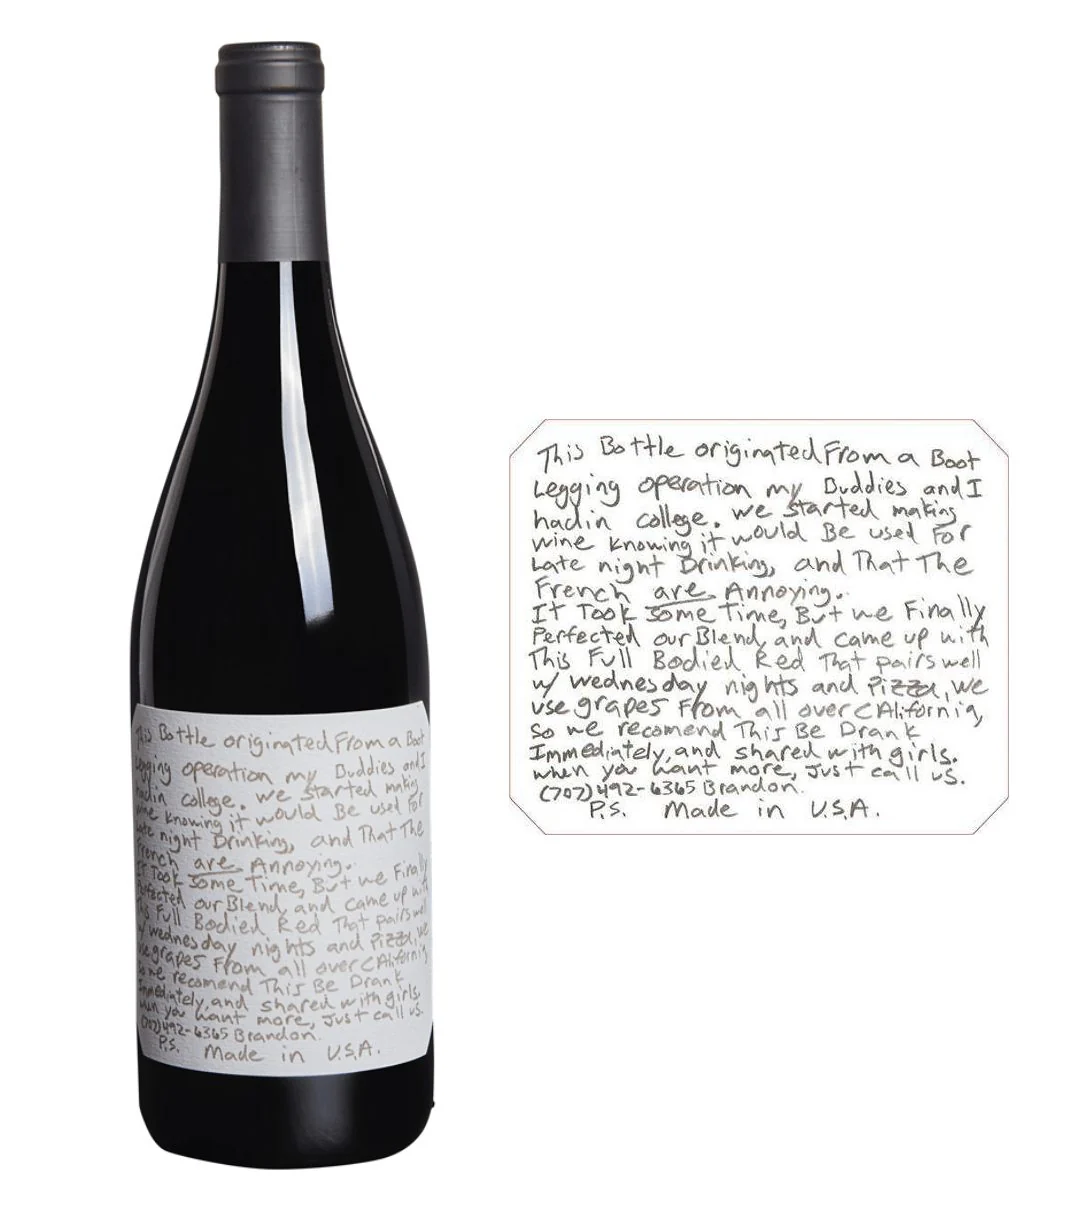 This Bottle originated From a Boot
Legging operation my Buddies and I
had in college. we started making
wine knowing it would Be used For
Late night Drinking, and That The
French are Annoying.
It Took some Time, But we Finally
Perfected our Blend, and came up with
This Full Bodied Red That pairs well
w/ wednesday nights and Pizza, we
use grapes From all over CAlifornia,
so we recomend This Be Drank
Immediately, and shared with girls.
when you want more, Just call us.
(707)492-6365 Brandon.
P.S. Made in U.S.A.
This Bottle originated From a Boot
Legging operation my Buddies and I
had in college. we started making
wine knowing it would Be used For
Late night Drinking, and That The
French are Annoying.
It Took some Time, But we Finally
Perfected our Blend, and came up with
This Full Bodied Red That pairs well
w/ wednesday nights and Pizza, we
use grapes From all over CAlifornia,
so we recomend This Be Drank
Immediately, and shared with girls.
when you want more, Just call us.
(707)492-6365 Brandon.
P.S. Made in U.S.A.